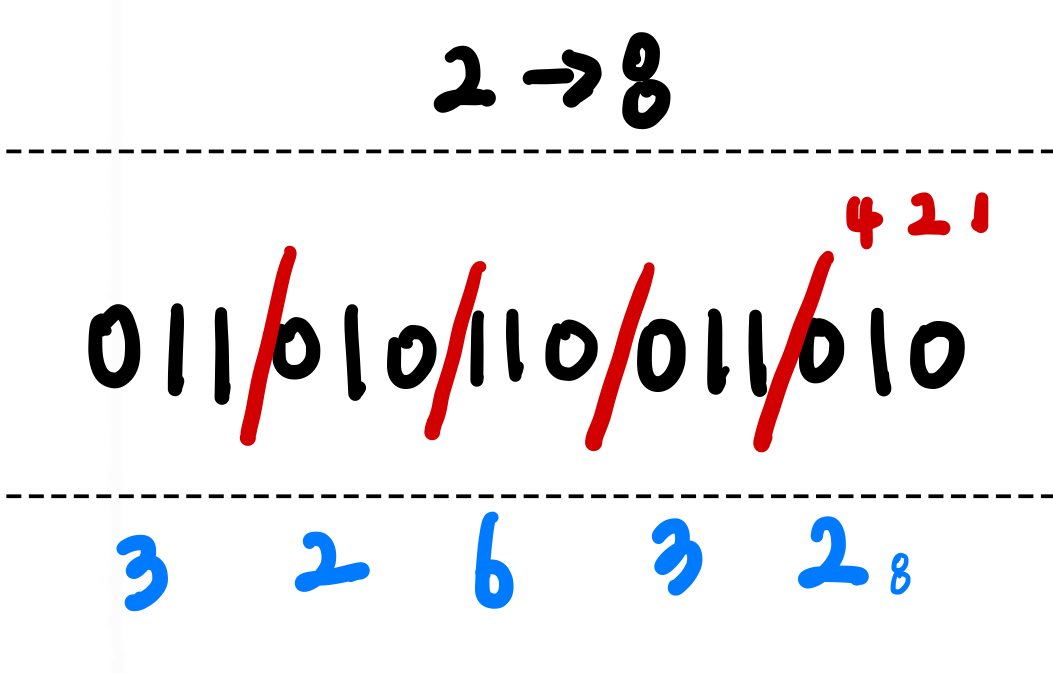 2 → 8
4 2 1
011/010/110/011/010
3 2 6 3 2 8